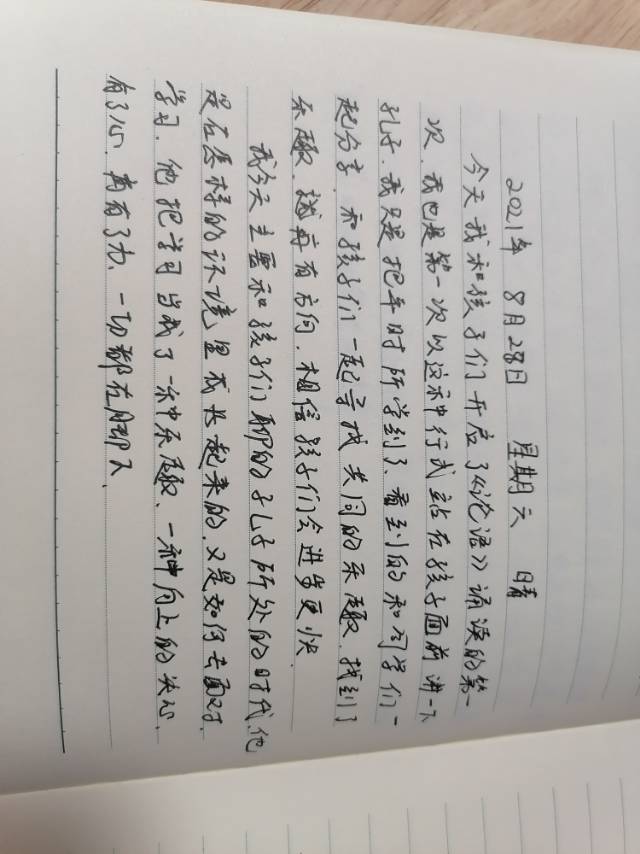 2021年 8月28日 星期六 晴
今天我和孩子们开启了《论语》诵读的第一
次,我也是第一次以这种形式站在孩子面前讲一下
孔子,我只是把平时所学到了、看到的和同学们一
起分享,和孩子们一起寻找共同的乐趣,找到了
乐趣,就再有方向,相信孩子们会进步更快
我今天主要和孩子们聊的孔子所处的时代,他
是在怎样的环境里成长起来的,又是如何去面对
学习,他把学习当成了一种乐趣,一种向上的决心,
有了心,离有了力,一切都在脚下,